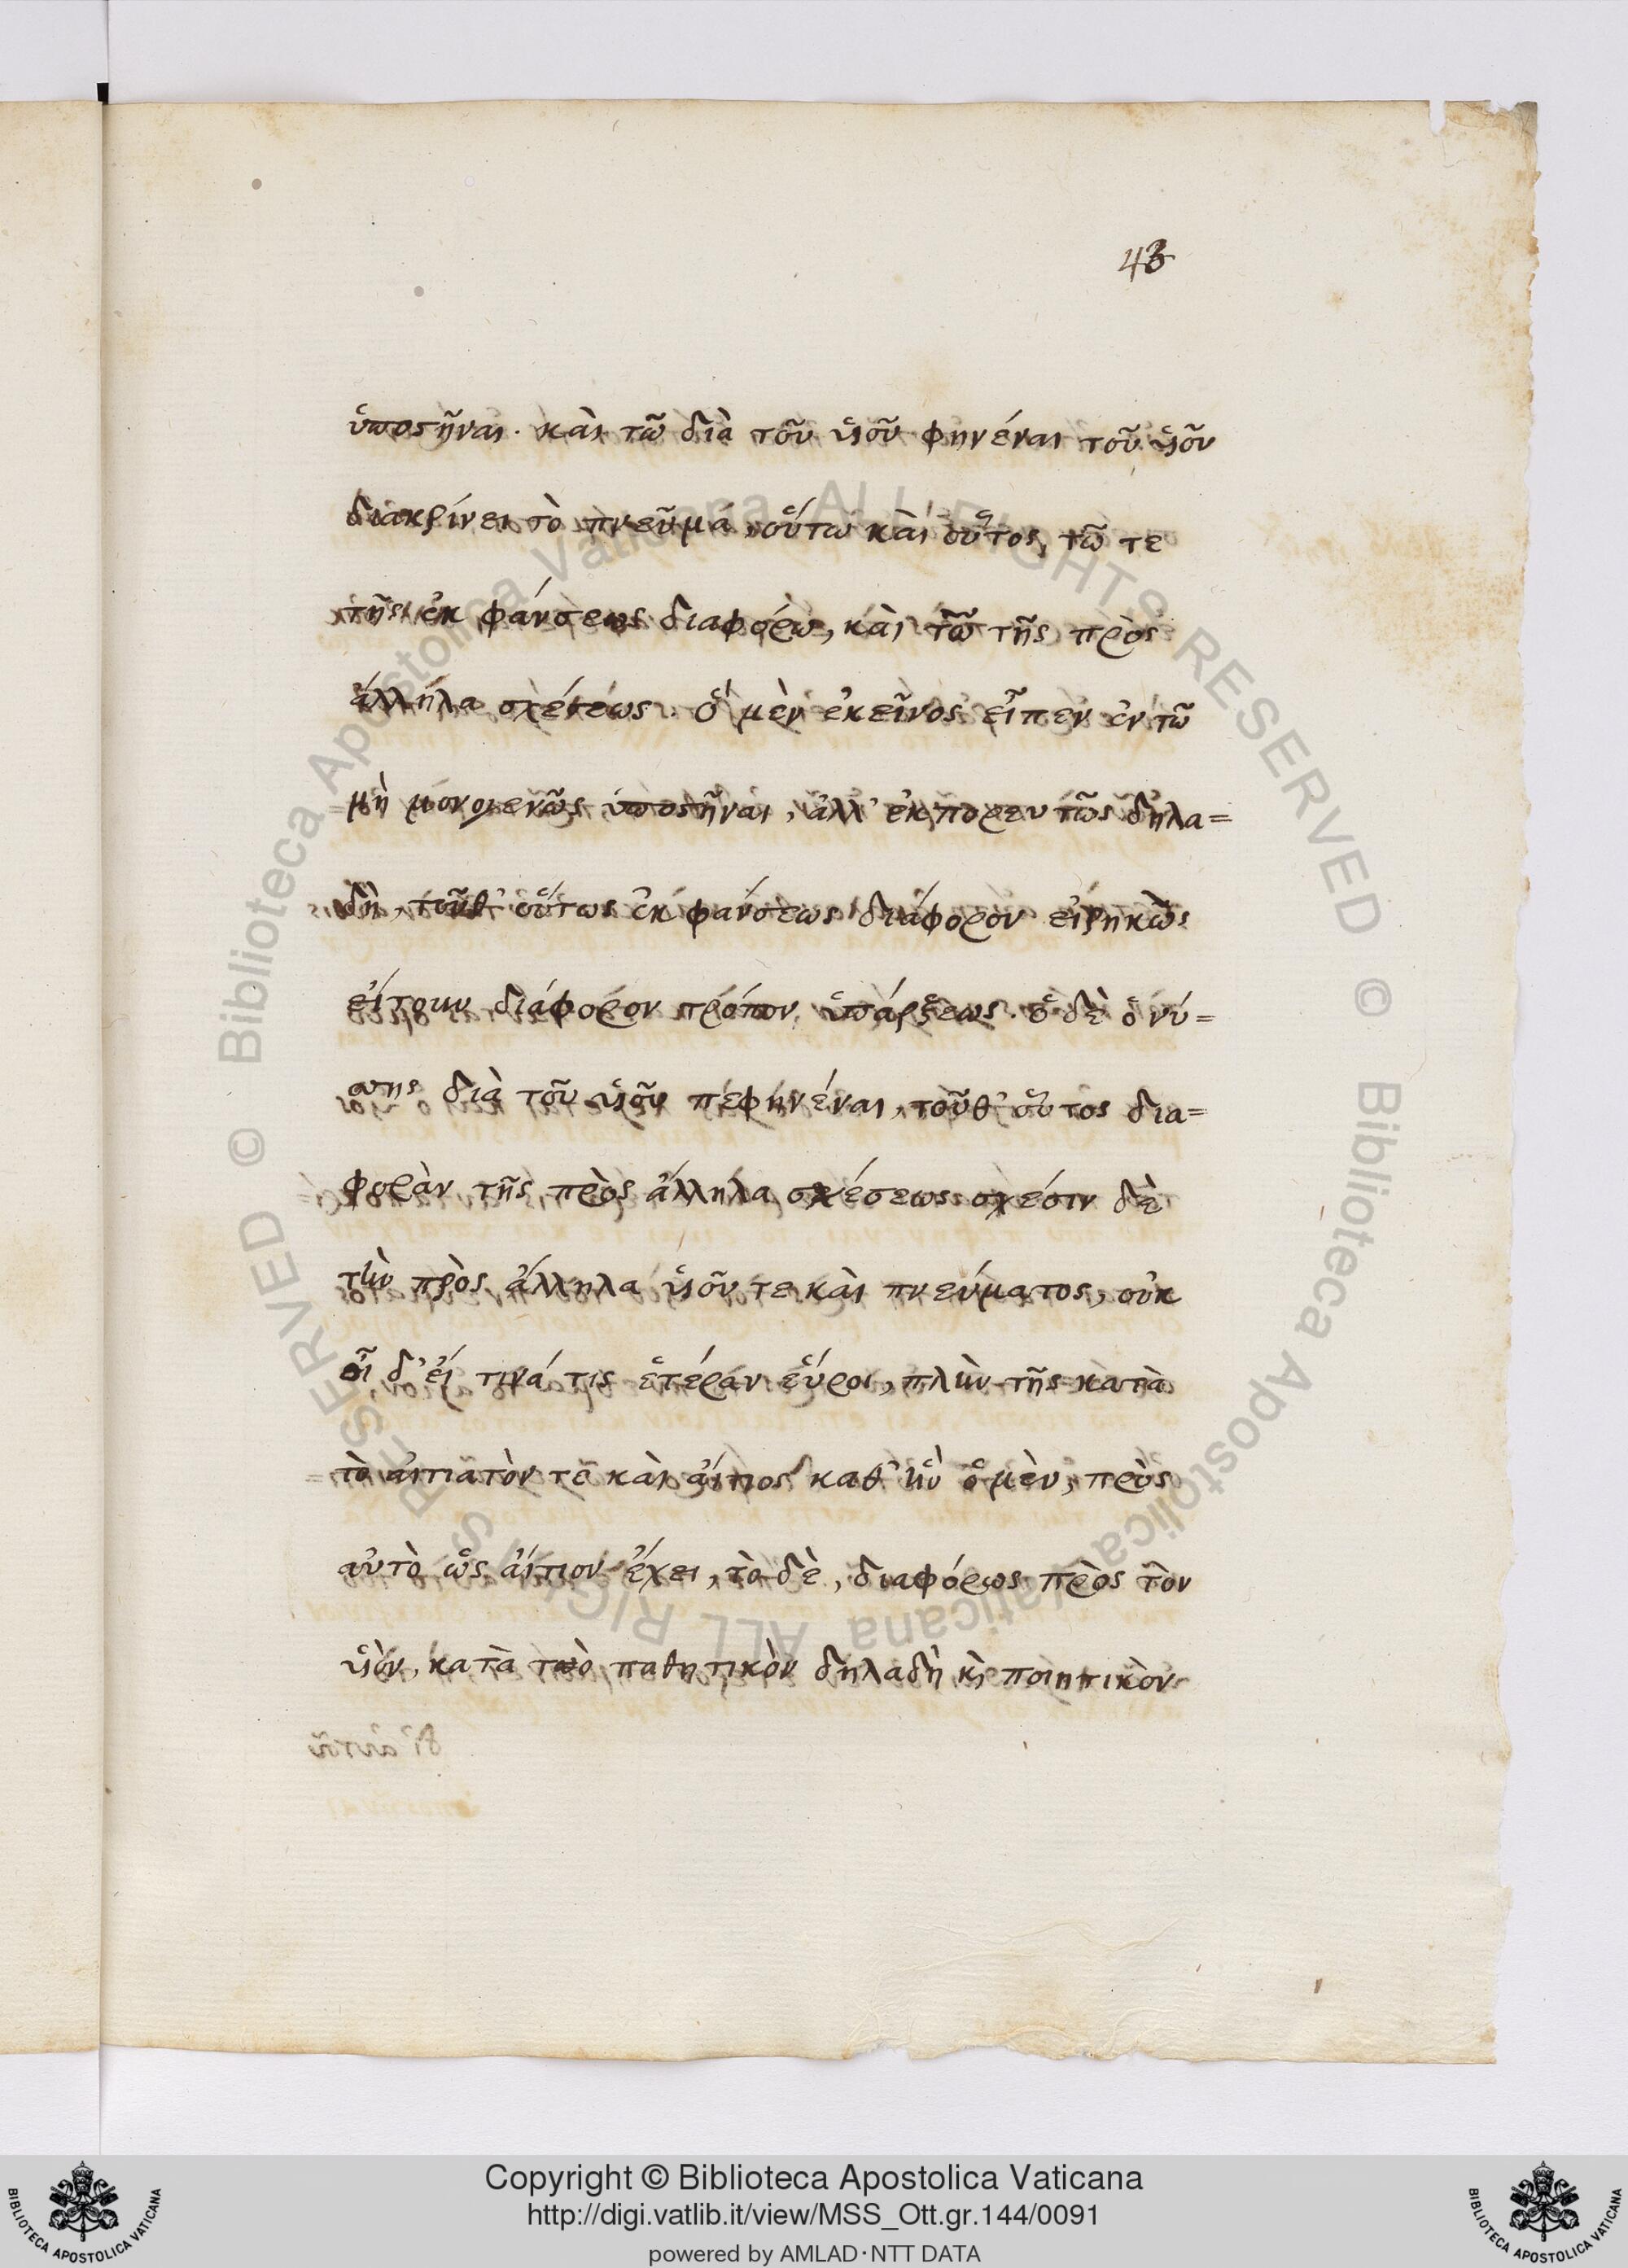 43
ὑποστῆναι. καὶ τῶ διὰ τοῦ ὑιοῦ φηνέναι τοῦ ὑιοῦ
διακρίνει τὸ πνεῦμα, οὕτω καὶ οὗτος, τῶ τε
τῆς ἐκφάνσεως διαφόρω, καὶ τῶ τῆς πρὸς
ἄλληλα σχέσεως. ὃ μὲν ἐκεῖνος εἶπεν ἐν τῶ
μὴ μονογενῶς ὑποστῆναι, ἀλλ' ἐκπορευτῶς δηλα=
δὴ, τοῦθ' οὕτως ἐκφάνσεως διάφορον εἰρηκὼς
εἴτουν διάφορον τρόπον ὑπάρξεως. ὃ δὲ ὁ νύ=
σσης διὰ τοῦ ὑιοῦ πεφηνέναι, τοῦθ' οὗτος δια=
φορὰν τῆς πρὸς ἄλληλα σχέσεως. σχέσιν δὲ
τὴν πρὸς ἄλληλα ὑιοῦ τε καὶ πνεύματος, οὐκ
οἶδ' εἴ τινά τις ἑτέραν εὕροι, πλὴν τῆς κατὰ
τὸ αἰτιατὸν τε καὶ αἴτιος καθ' ἣν ὁ μὲν, πρὸς
αὐτὸ ὡς αἴτιον ἔχει, τὸ δὲ, διαφόρως πρὸς τὸν
ὑιὸν, κατὰ τὸ παθητικὸν δηλαδὴ κὶ ποιητικὸν
Copyright © Biblioteca Apostolica Vaticana
http://digi.vatlib.it/view/MSS_Ott.gr.144/0091
powered by AMLAD·NTT DATA
BIBLIOTECA APOSTOLICA VATICANA
BIBLIOTECA APOSTOLICA VATICANA
© Biblioteca Apostolica Vaticana ALL RIGHTS RESERVED
© Biblioteca Apostolica Vaticana ALL RIGHTS RESERVED